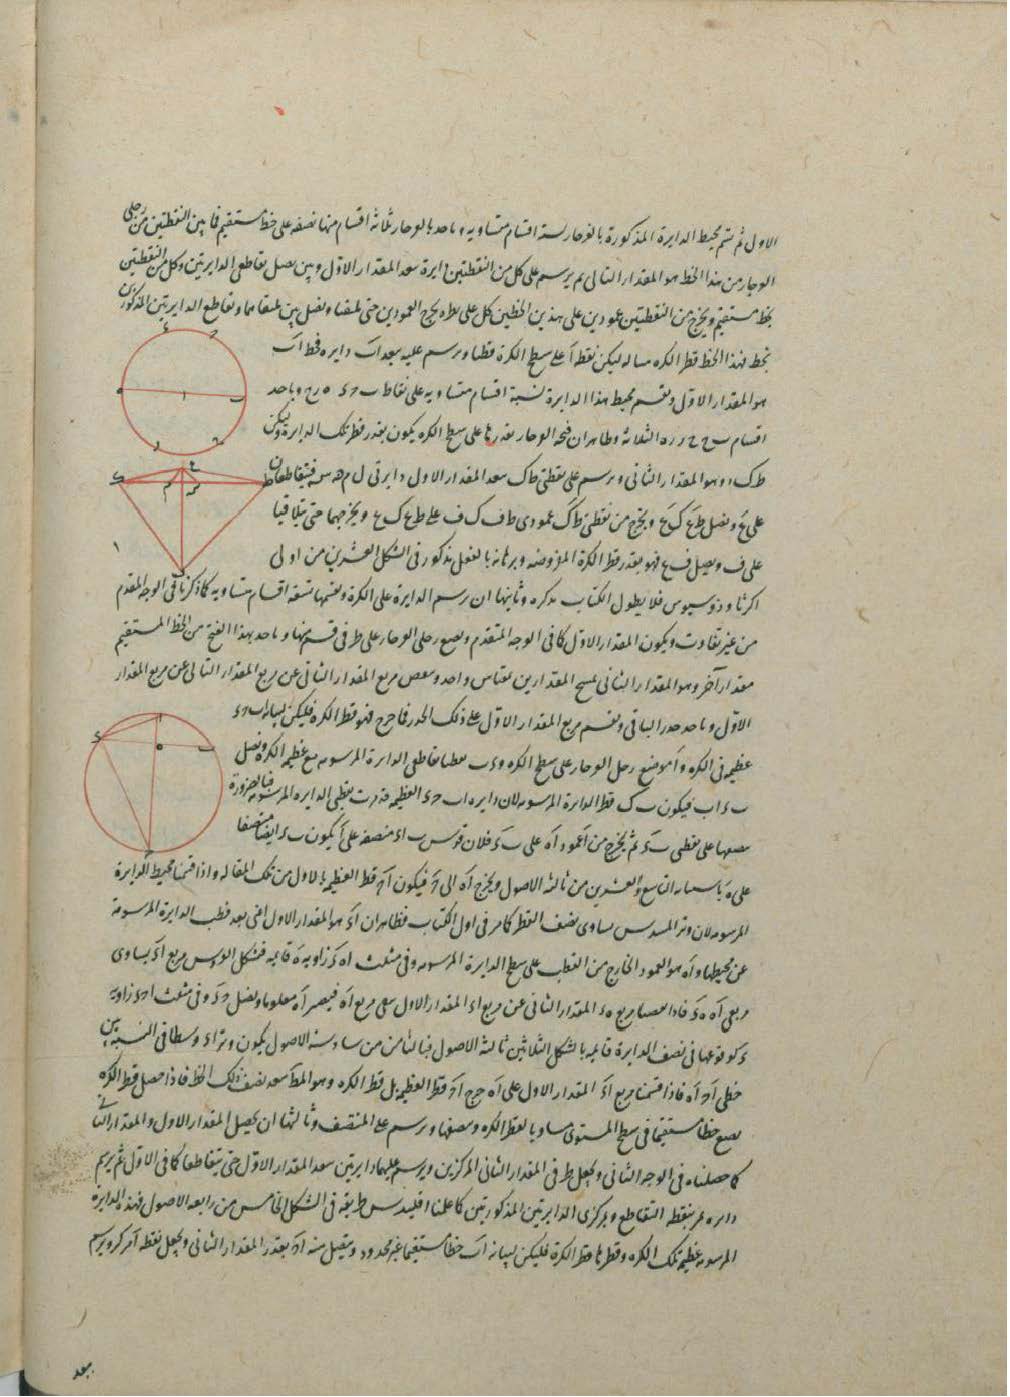 الاول ثم نقسم محيط الدايرة المذكورة بالفرجار ستة اقسام متساويه وناخذ بالفرجار ثلاثة اقسام منها نضعه على خط مستقيم فما بين النقطتين من رجلى
الفرجار من هذا الخط هو المقدار الثانى ثم يرسم على كل من النقطتين دايرة ببعد المقدار الاول وبين نصل تقاطعى الدايرتين وكل من النقطتين
بخط مستقيم ويخرج من النقطتين عمودين على هذين الخطين كل على نظيره يخرج العمودين حتى يلتقيا ونصل بين ملتقاهما وتقاطع الدايرتين المذكورتين
بخط فهذا الخط قطر الكره مثاله ليكن نقطة آ على سطح الكرة قطبا ويرسم عليه ببعد اب دايره فخط اب
هو المقدار الاول ونقسم محيط هذا الدايرة بستة اقسام متساويه على نقاط ب ح ء ه ر ح وناخذ
اقسام ب ح ح ر ر ه الثلاثة وظاهر ان فتحة الفرجار بقدرها على سطح الكره يكون بقدر قطر تلك الدايرة وليكن
ط ك وهو المقدار الثانى ويرسم على نقطتى ط ك ببعد المقدار الاول دايرتى ل م ن س فيتقاطعان
على ع ونصل ط ع ك ع ويخرج من نقطتى ط ك عمودى ط ف ك ف على ط ع ك ع ويخرجهما حتى يتلاقيا
على ف ويصل ف ع فهو بقدر قطر الكرة المفروضه وبرهانه بالفعل مذكور فى الشكل العشرين من اولى
اكر ثاوذوسيوس فلا يطول الكتاب بذكره وثانيها ان يرسم الدايرة على الكرة ونقسمها بستة اقسام متساويه كما ذكرنا فى الوجه المقدم
من غير تفاوت ويكون المقدار الاول كما فى الوجه المتقدم ونضع رجلى الفرجار على طرفى قسم منها وناخذ بهذا الفتح من الخط المستقيم
مقدار آخر وهو المقدار الثانى لنمسح المقدارين بمقياس واحد وينقص مربع المقدار الثانى عن مربع المقدار
الاول وناخذ جذر الباقى ونقسم مربع المقدار الاول على ذلك الجذر فما خرج فهو قطر الكره فليكن لبيانه اب ح ء
عظيمه فى الكره و آ موضع رجل الفرجار على سطح الكره و ء ب نقطتا تقاطعى الدايرة المرسومه مع عظيمة الكره ونصل
ب ء اب فيكون ب ء قطر الدايرة المرسومه لان دايره اب ح ء العظيمه قد مرت بقطبى الدايره المرسومه فبالضرورة
ينصفها على نقطتى ب ء ثم يخرج من آ عمود آه على ب ء فلان قوس ب ا ء منصفة على آ يكون ب ء ايضا منصفا
على ه باستبانة التاسع والعشرين من ثالثة الاصول ويخرج آه الى ح فيكون آح قطر العظيمه بالاول من تلك المقاله واذا قسمنا محيط الدايرة
المرسومه لان وتر المسدس يساوى نصف القطر كما مر فى اول الكتاب فظاهر ان آء هو المقدار الاول اعنى بعد قطب الدايرة المرسومة
عن محيطها و آه هو العمود الخارج من القطب على سطح الدايرة المرسومه وفى مثلث اه ء زاويه ه قايمه فبشكل العروس مربع اء يساوى
مربعى آه ه ء فاذا نقصنا مربع ه ء المقدار الثانى عن مربع اء المقدار الاول بقى مربع آه فيصير آه معلوما ونصل ح ء وفى مثلث ا ح ء زاوية
ء لوقوعها فى نصف الدايرة قايمه بالشكل الثلاثين ثالثة الاصول فبالثامن من سادسة الاصول يكون وتر اء وسطا فى النسبه بين
خطى آح آه فاذا قسمنا مربع اء المقدار الاول على اه خرج آح قطر العظيمه بل قطر الكره وهو المطلوب ببعد نصف ذلك الخط فاذا حصل قطر الكره
نضع خطا مستقيما فى سطح المستوى مساويا لقطر الكره وننصفها ويرسم على المنتصف وثالثها ان يحصل المقدار الاول والمقدار الثانى
كما حصلناه فى الوجه الثانى ويجعل طرفى المقدار الثانى المركزين ويرسم عليهما دايرتين ببعد المقدار الاول حتى يتقاطعا كما فى الاول ثم يرسم
دايره تمر بنقطة التقاطع وبمركزى الدايرتين المذكورتين كما علمنا اقليدس طريقه فى الشكل الخامس من رابعة الاصول فهذه الدايرة
المرسومه عظيمة تلك الكره وقطرها قطر الكرة فليكن لبيانه اب خطا مستقيما غير محدود ويفصل منه اح بقدر المقدار الثانى ويجعل نقطه آ مركز ويرسم
ببعد